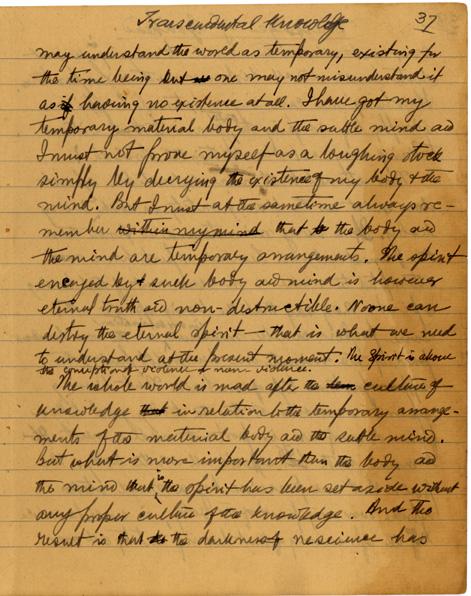 Transcendental Knowledge 37
may understand the world as temporary, existing for
the time being but one may not misunderstand it
as if having no existence at all. I have got my
temporary material body and the subtle mind and
I must not prove myself as a laughing stock
simply by decrying the existence of my body & the
mind. But I must at the sametime always re-
member within my mind that the body and
the mind are temporary arrangements. The spirit
encaged by such body and mind is however
eternal truth and non-destructible. Noone can
destroy the eternal spirit - that is what we need
to understand at the present moment. The Spirit is above
the conception of violence & non violence.
The whole world is mad after the culture of
knowledge that in relation to the temporary arrange-
ments of the material body and the subtle mind.
But what is more important than the body and
the mind that is the spirit has been set aside without
any proper culture of the knowledge. And the
result is that the darkness of nescience has